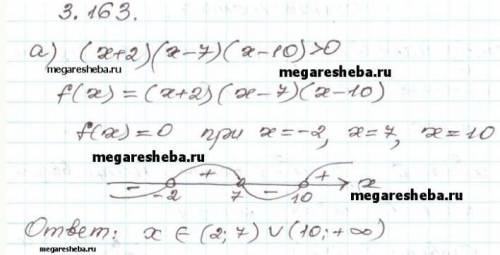 3.163.
а) (x+2)(x-7)(x-10)>0
megaresheba.ru
megaresheba.ru
f(x)=(x+2)(x-7)(x-10)
f(x)=0 при x=-2, x=7, x=10
megaresheba.ru
- + - + x
-2 7 10
megaresheba.ru
Ответ: x ∈ (2;7) ∪ (10;+∞)
megaresheba.ru